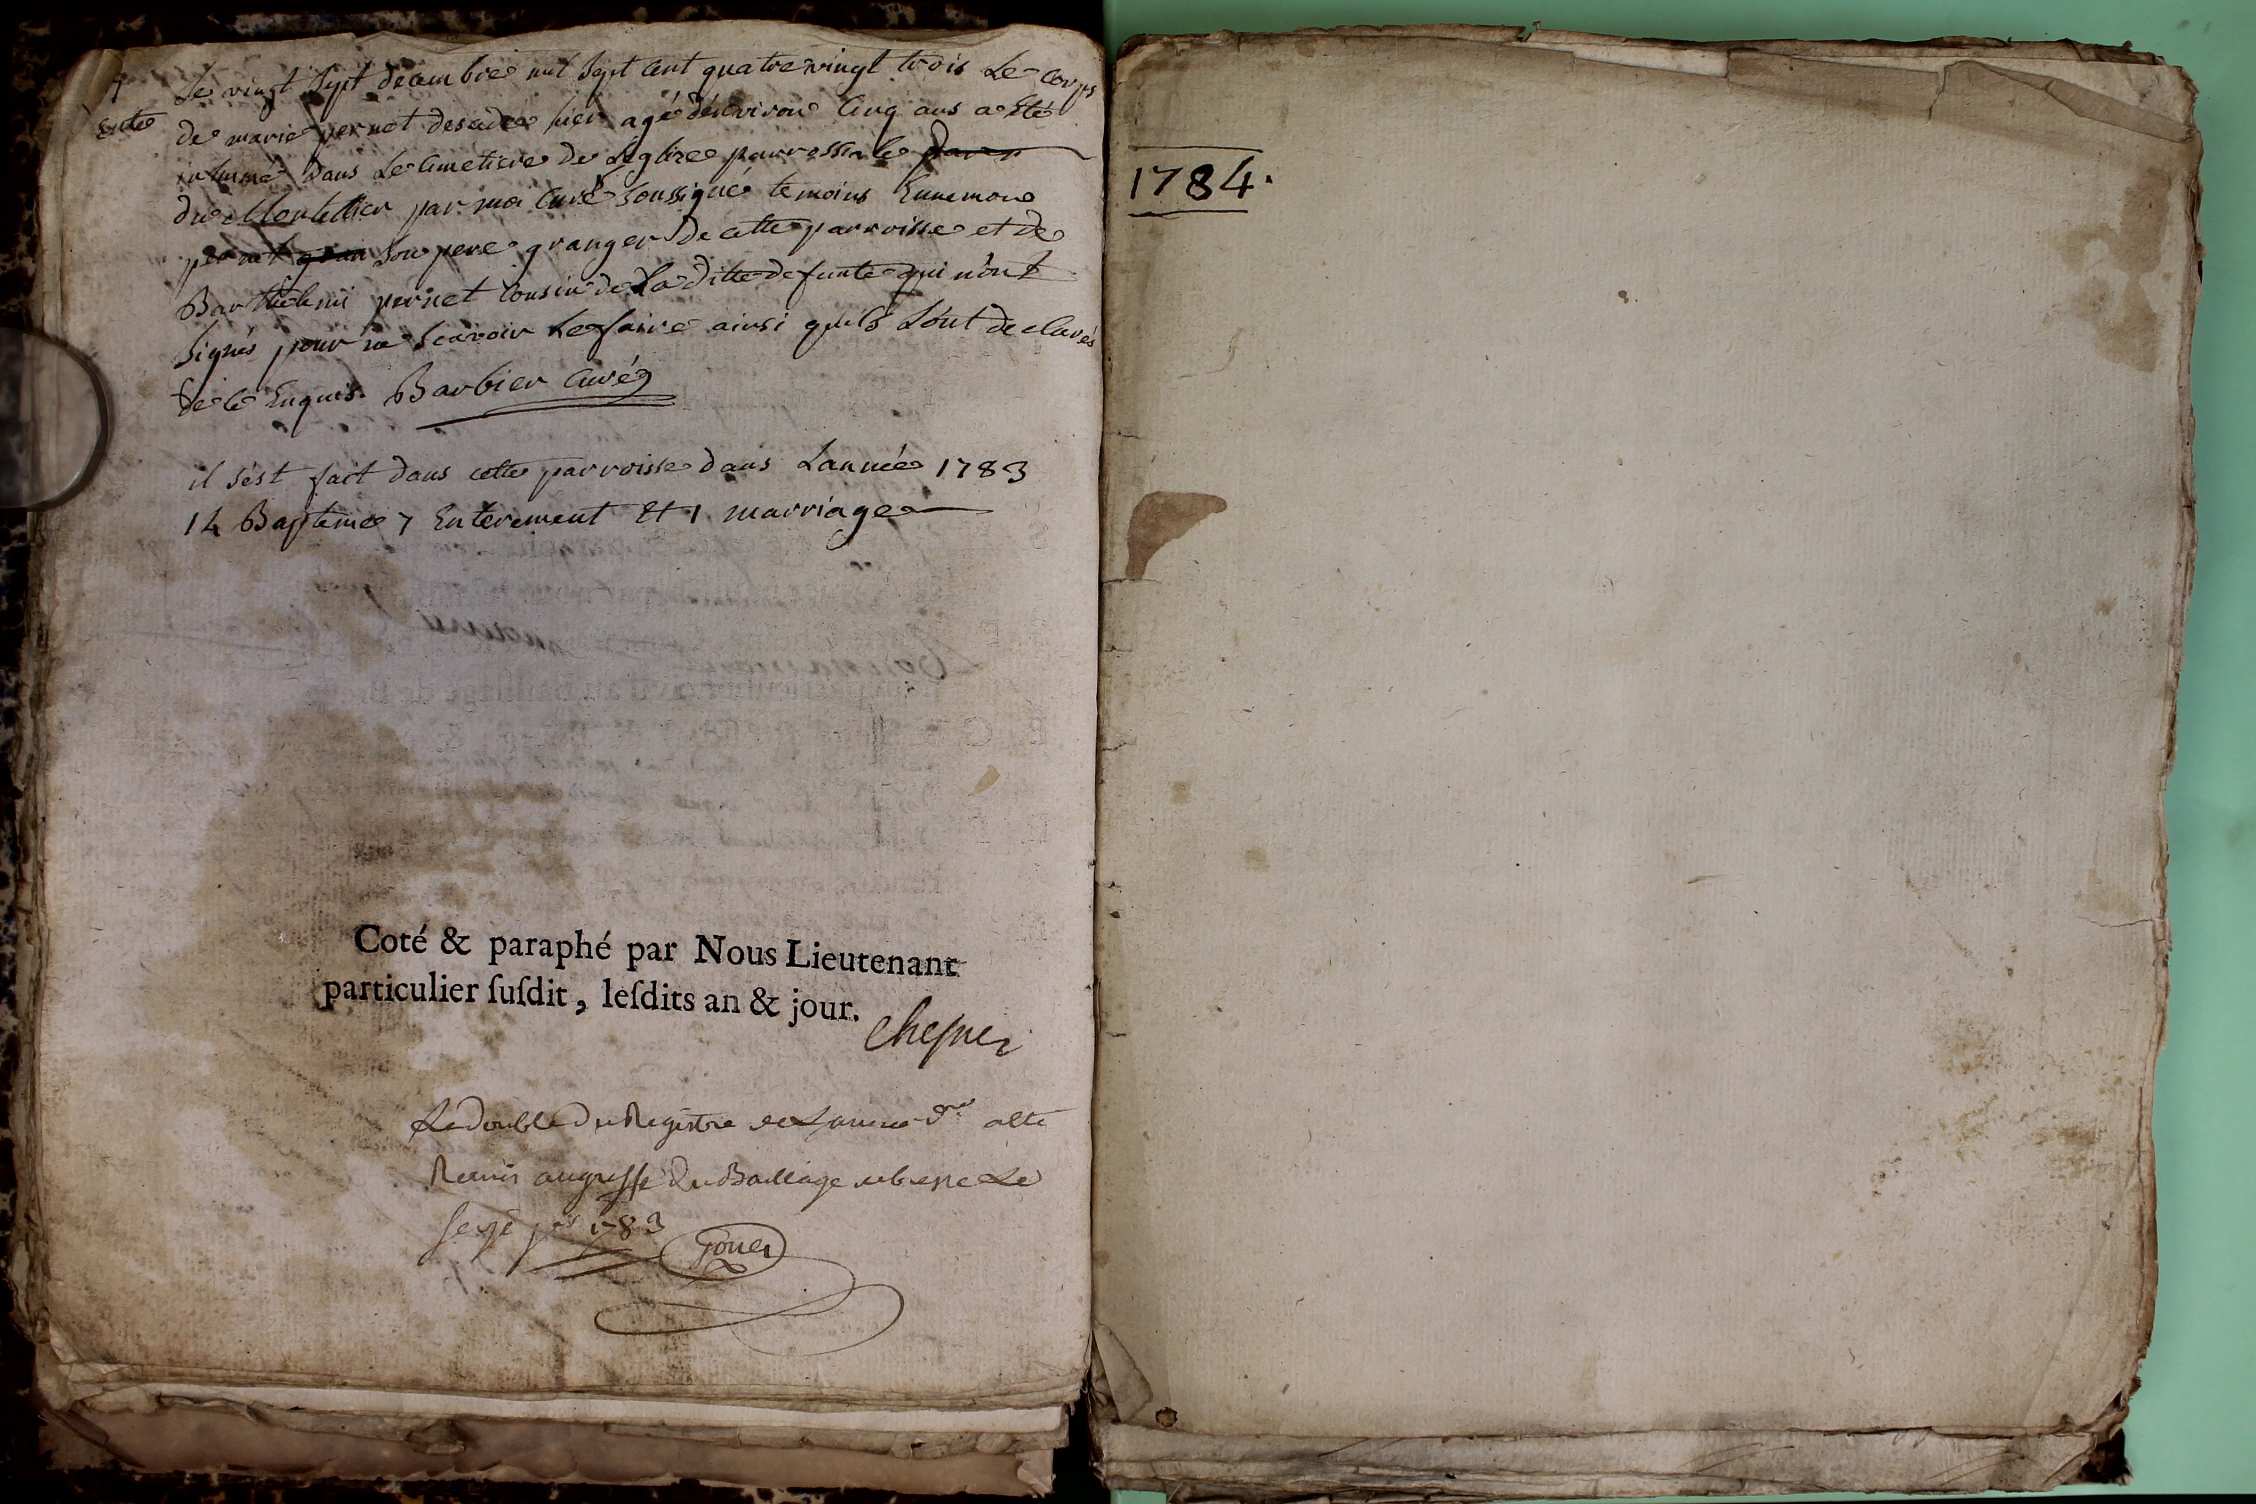 7
Ente
Le vingt Sept decembre mil Sept Cent quatre vingt trois Le Corps
de marie pernet desedee hier agé dénviron Cinq ans a Eté
inhumé dans Le Cimetiere de Léglize parrossiale
du Montellier par moi Curé Soussigné temoins Ennemon
pernet Son pere granger de cette parroisse et de
Barthelemi pernet Cousin de La ditte defunte qui nónt
Signés pour ne Scavoir Le faire ainsi quils Lónt declarés
de ce Enquis. Barbier Curé
il sést fait dans cette parroisse dans Lannée 1783
14 Bapteme 7 Enterement Et 1 marriage
Coté & paraphé par Nous Lieutenant
particulier ſuſdit, leſdits an & jour.
Le Double Du Registre de Lannée
Remis au greffe Du Bailliage de bresse Le
1783
1784.